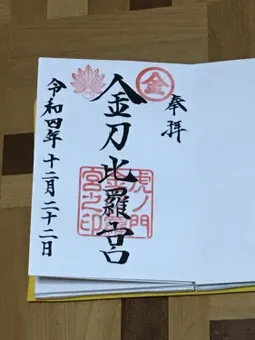 奉拝
金
金刀比羅宮
虎ノ門
宮之印
令和四年十二月二十二日